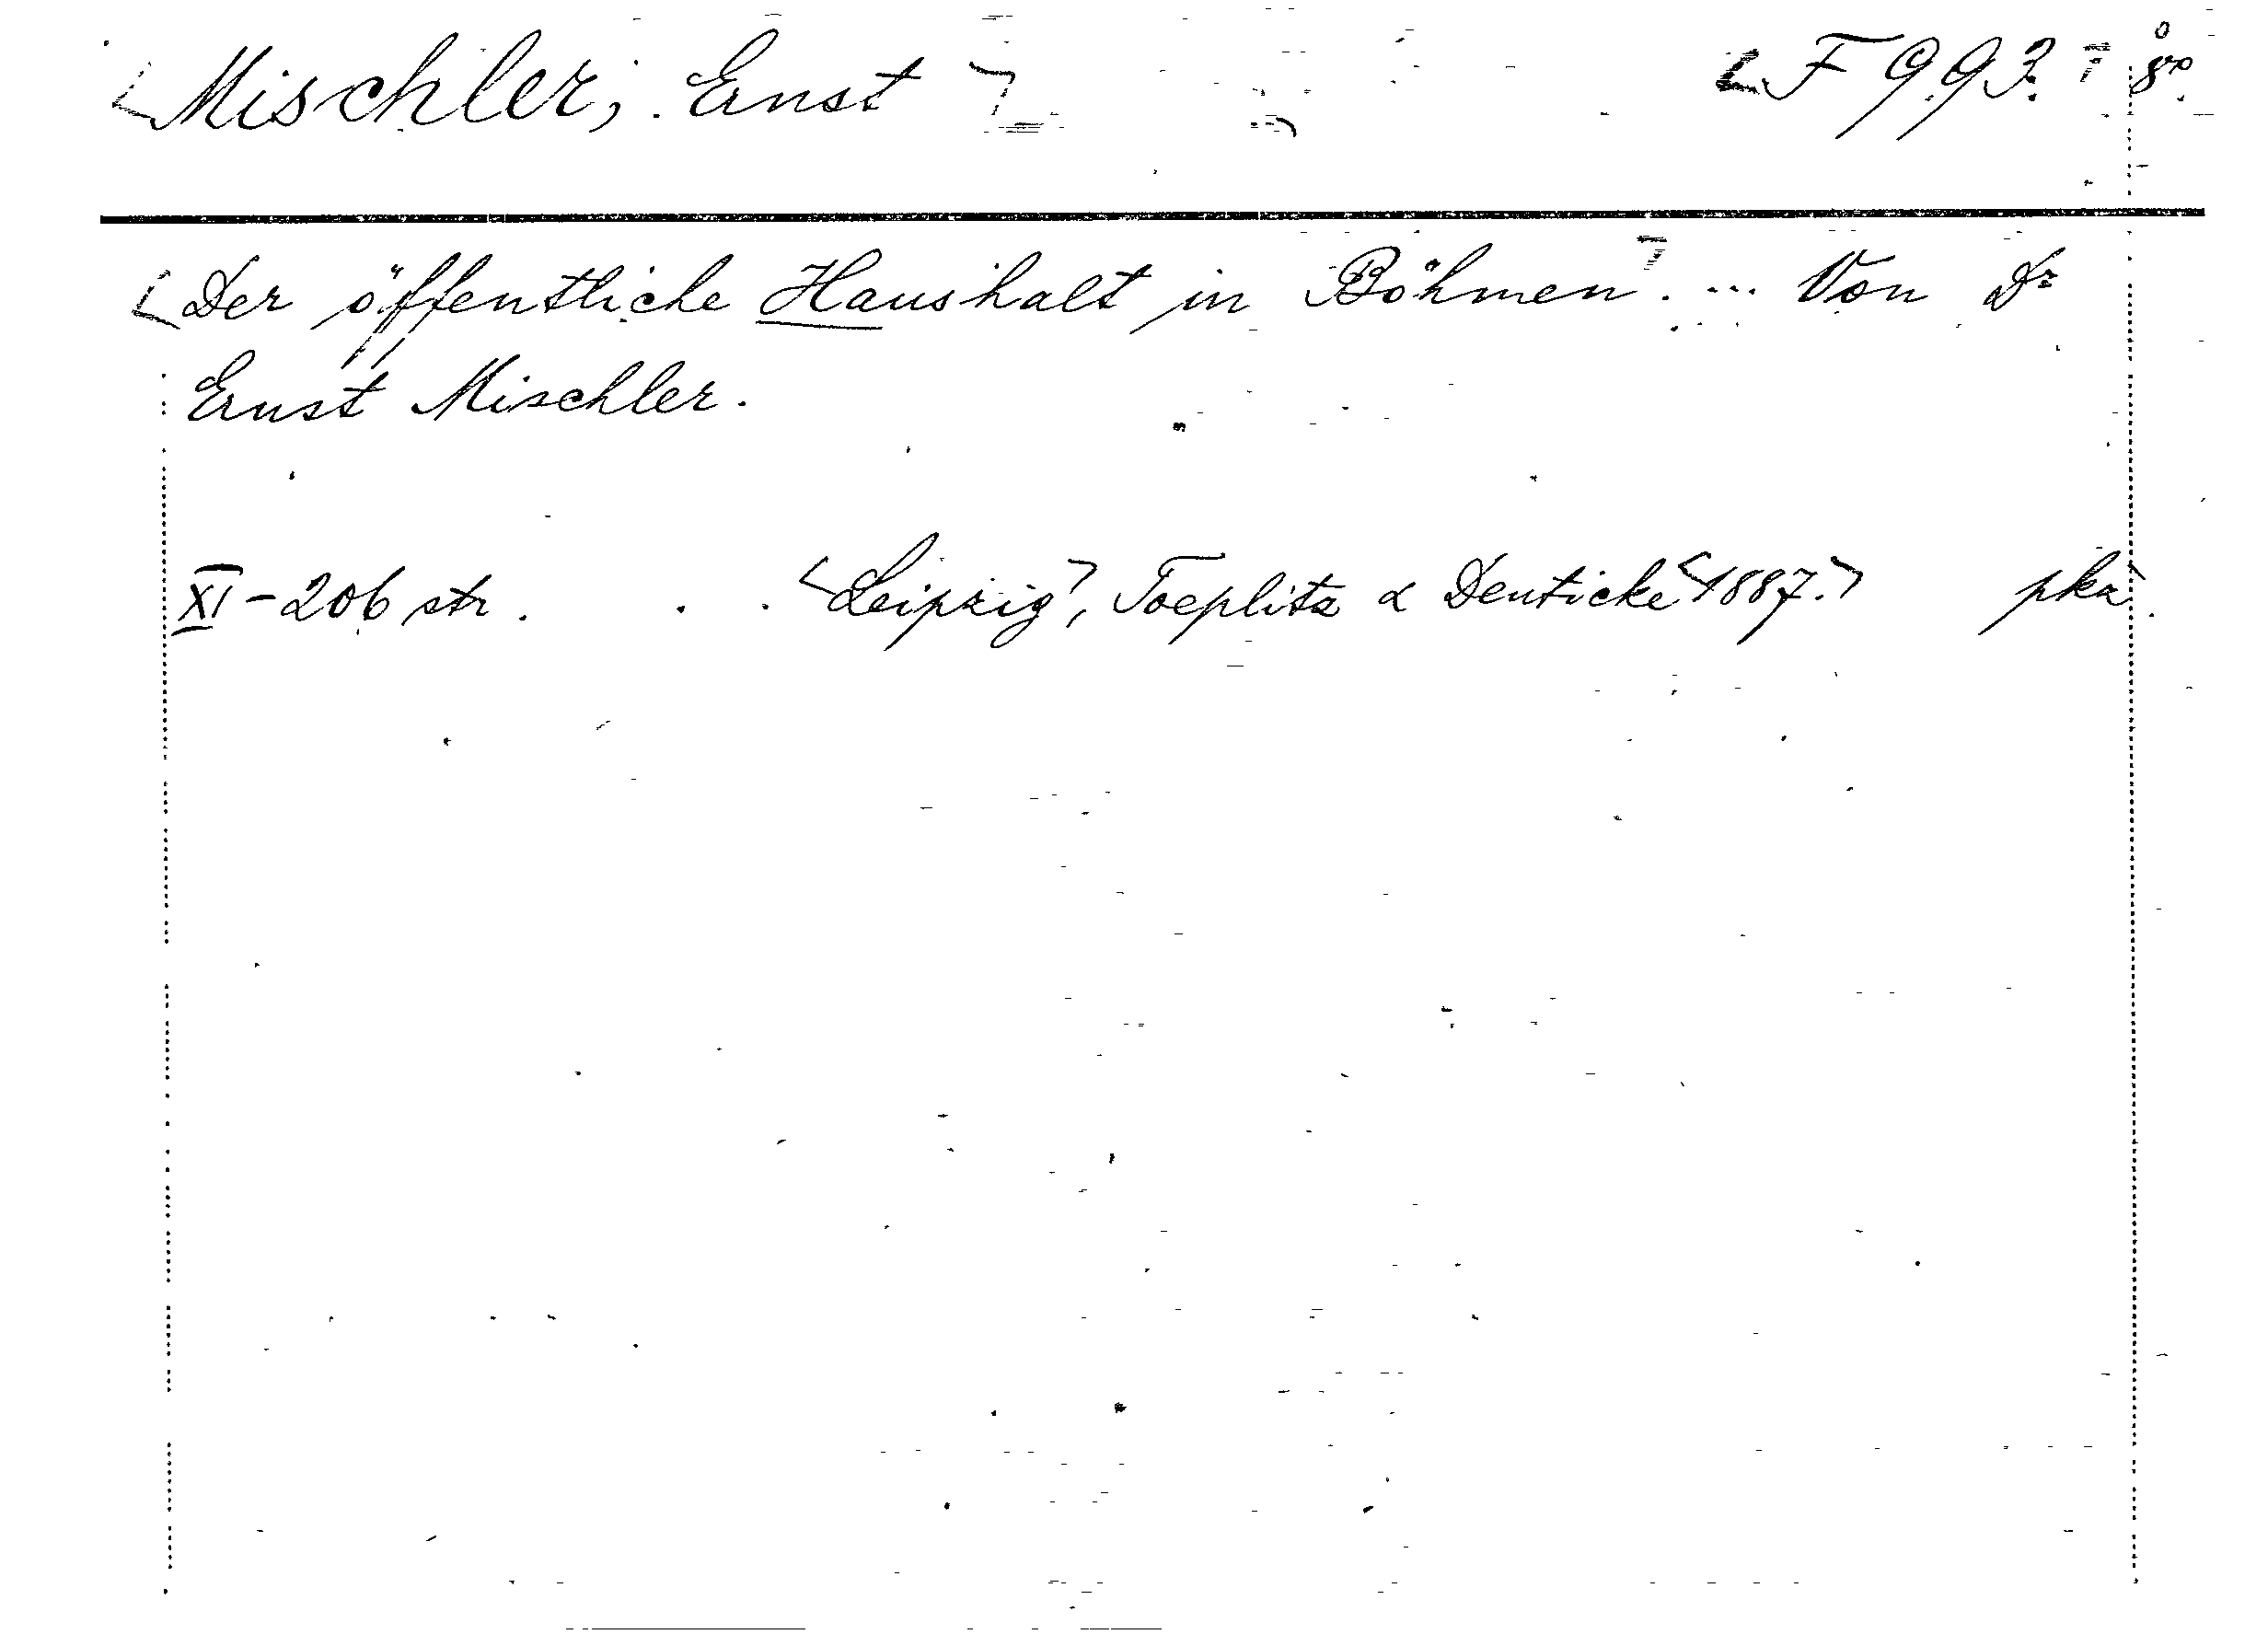 Mischler, Ernst F 993. 8°.
Der öffentliche Haushalt in Böhmen. ... Von Dr
Ernst Mischler.
XI-206 str. Leipzig, Toeplitz & Deuticke 1887. pka.